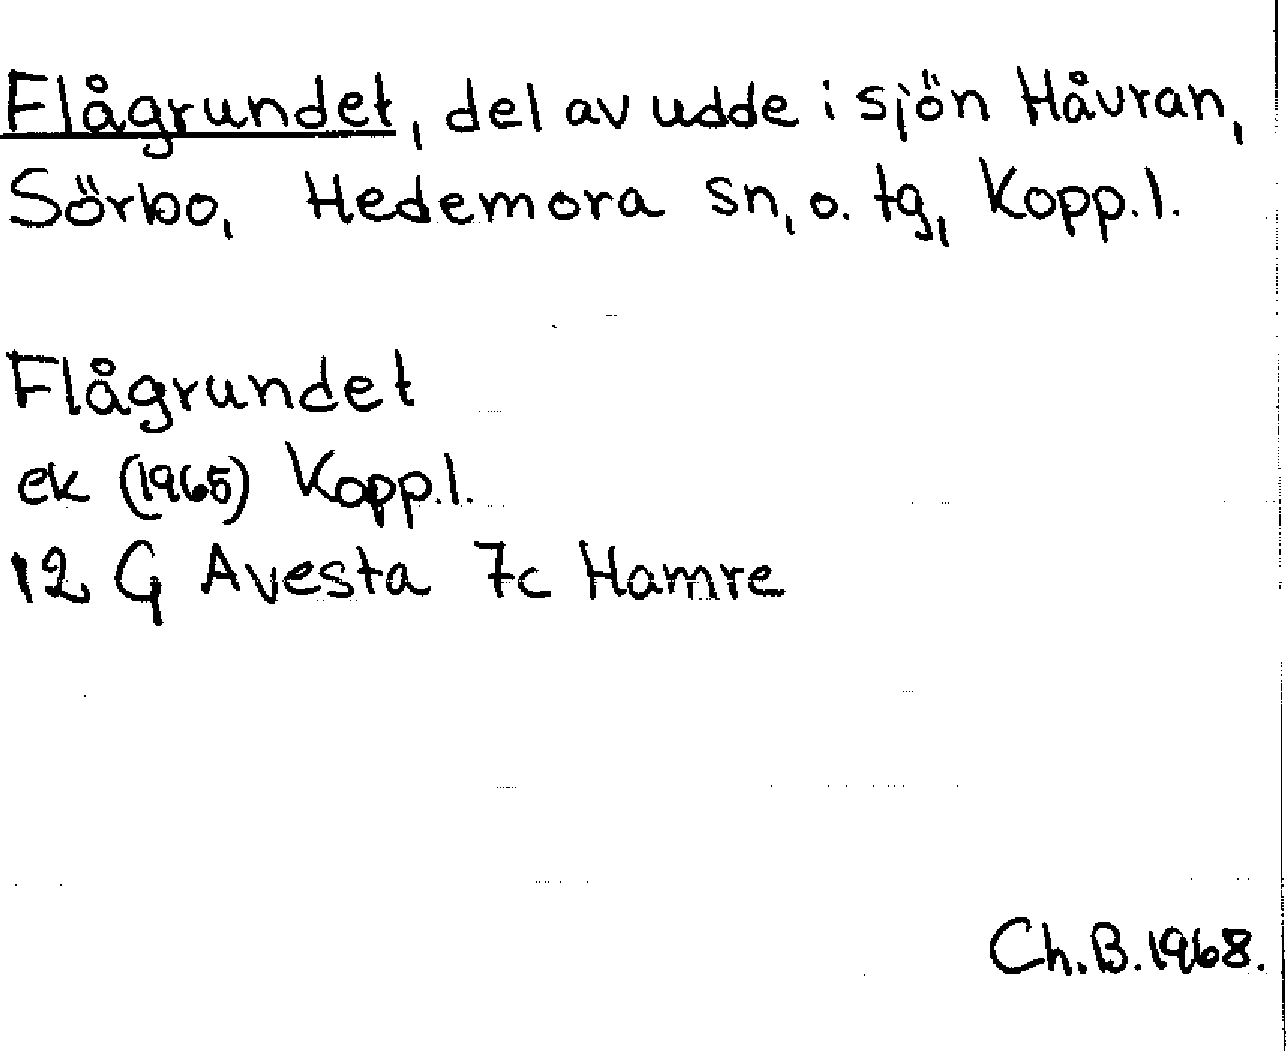 Flågrundet, del av udde i sjön Håvran,
Sörbo, Hedemora sn, o. tg, Kopp.l.
Flågrundet
ek (1965) Kopp.l.
12 G Avesta 7c Hamre
Ch.B.1968.